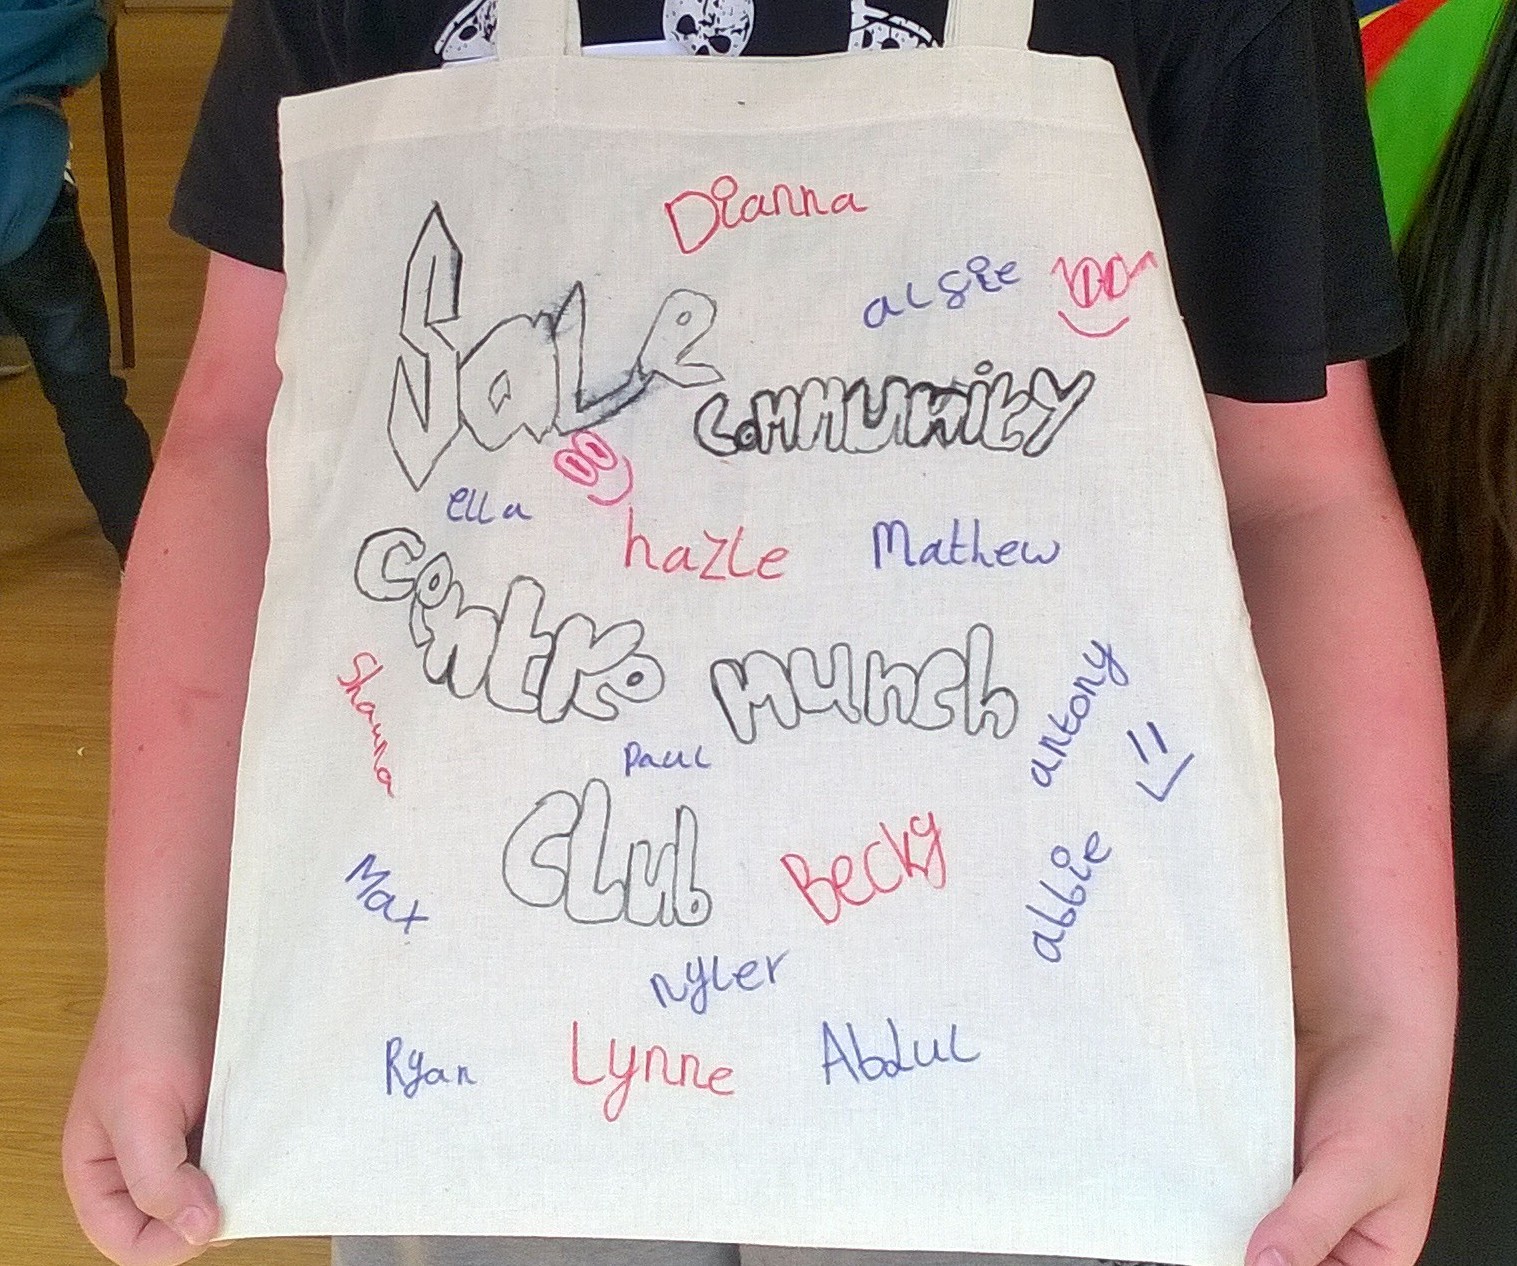 Dianna
algie
Sale
community
ella
hazle
Mathew
Centre
munch
Shawna
antony
Paul
Club
Becky
Max
abbie
nyler
Ryan
Lynne
Abdul